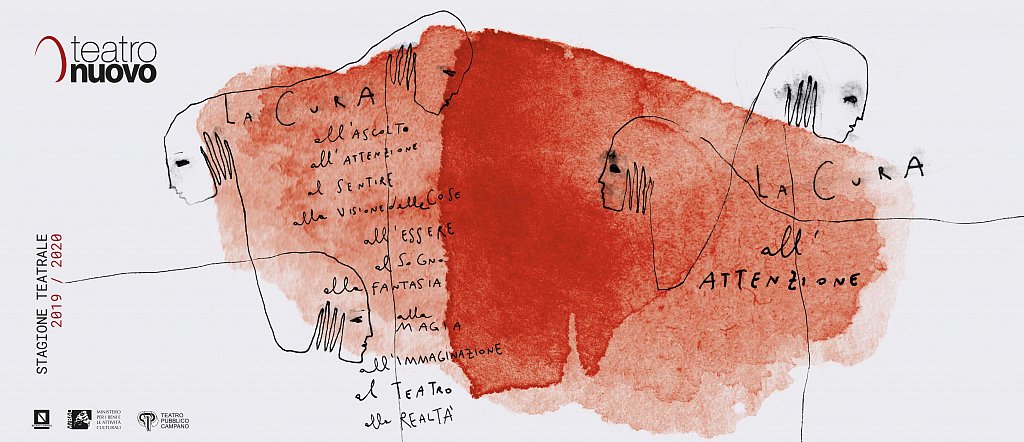 teatro
nuovo
LA CURA
all'ASCOLTO
all'ATTENZIONE
al SENTIRE
alla VISIONE delle COSE
all'ESSERE
al SOGNO
alla FANTASIA
alla
MAGIA
all'IMMAGINAZIONE
al TEATRO
alla REALTA'
LA CURA
all'
ATTENZIONE
STAGIONE TEATRALE
2019 / 2020
MINISTERO
PER I BENI E
LE ATTIVITÀ
CULTURALI
TEATRO
PUBBLICO
CAMPANO